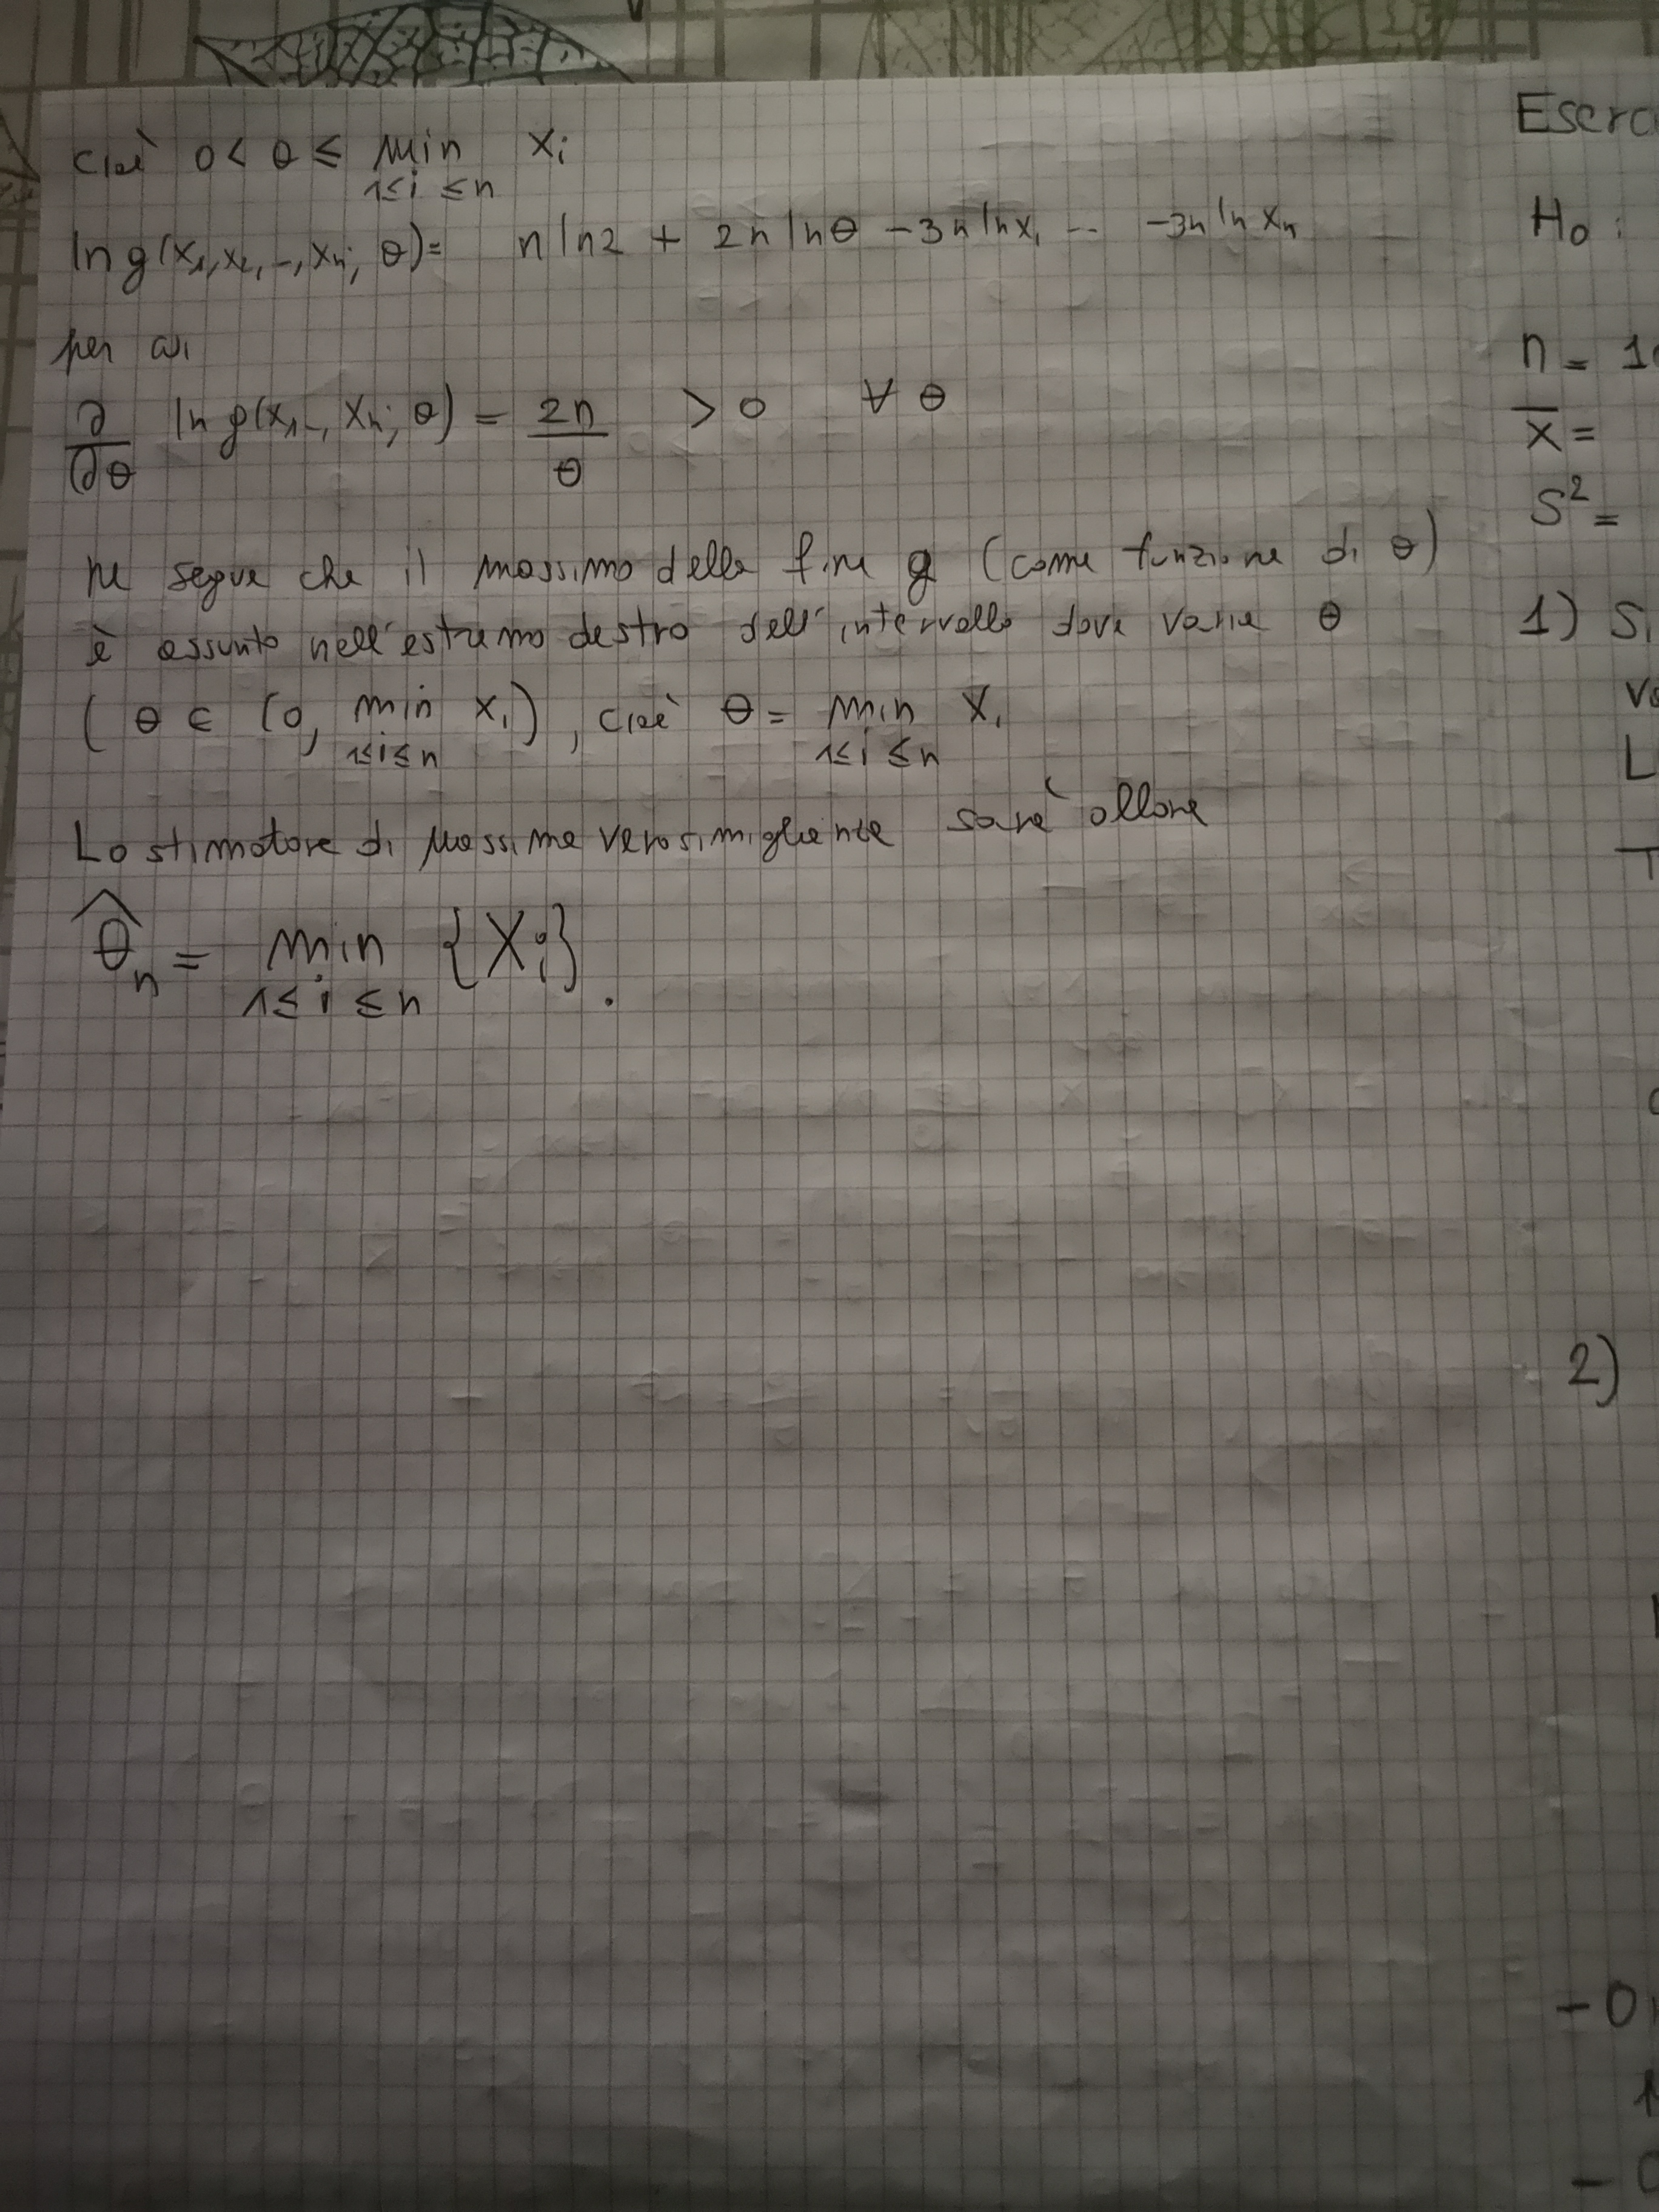 cioè 0 < θ ≤ min xi
1≤i≤n
ln g(x1, x2, -, xn; θ) = n ln2 + 2n lnθ - 3n ln x1 -- -3n ln xn
per cui
∂/∂θ ln g(x1-, xn; θ) = 2n/θ > 0 ∀ θ
ne segue che il massimo della f.ne g (come funzione di θ)
è assunto nell'estremo destro dell'intervallo dove varia θ
(θ ∈ (0, min xi), cioè θ = min xi
1≤i≤n 1≤i≤n
Lo stimatore di massima verosimiglianza sarà allora
θ̂n = min {Xi}.
1≤i≤n
Eserc
H0:
n = 1
x̄ =
S² =
1) S
L
T
2)
-0
-0